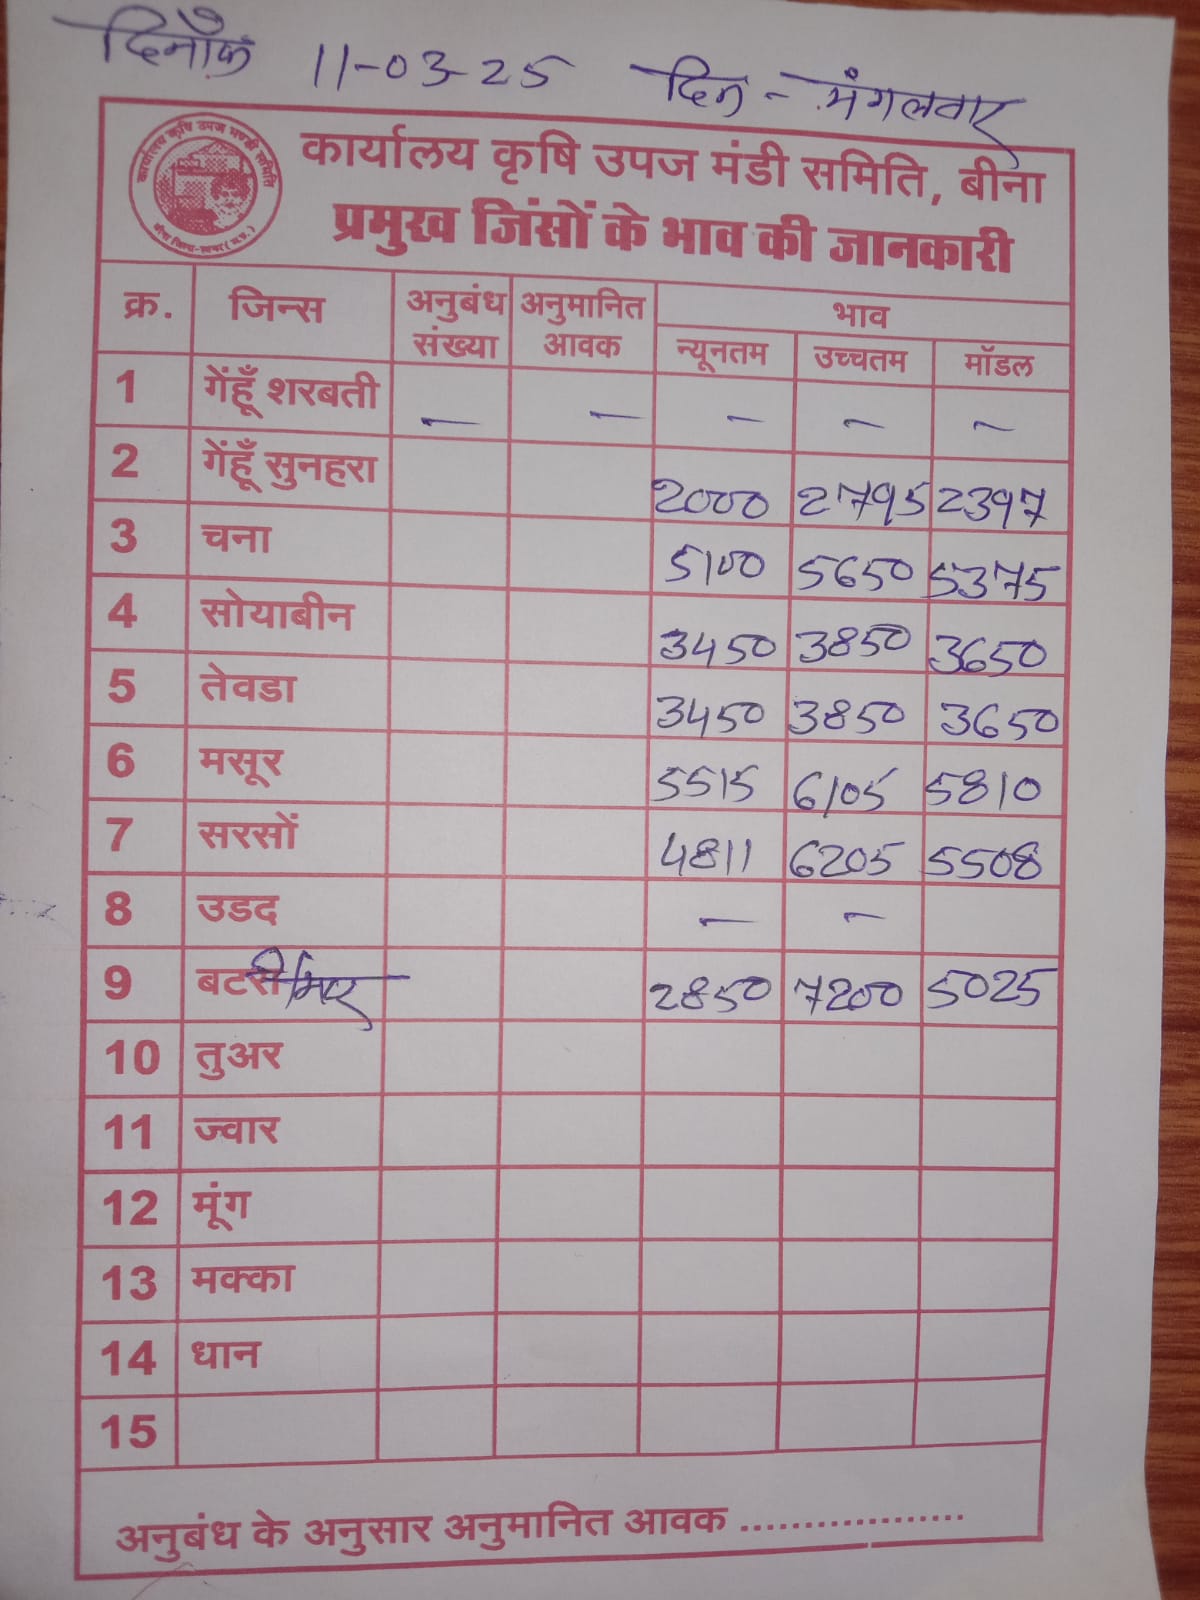 दिनाँक 11-03-25 दिन - मंगलवार
कार्यालय कृषि उपज मंडी समिति, बीना
प्रमुख जिंसों के भाव की जानकारी
क्र. जिन्स अनुबंध संख्या अनुमानित आवक भाव
न्यूनतम उच्चतम मॉडल
1 गेंहूँ शरबती – – – – –
2 गेंहूँ सुनहरा 2000 2795 2397
3 चना 5100 5650 5375
4 सोयाबीन 3450 3850 3650
5 तेवडा 3450 3850 3650
6 मसूर 5515 6105 5810
7 सरसों 4811 6205 5508
8 उडद – –
9 बटरी 2850 7200 5025
10 तुअर
11 ज्वार
12 मूंग
13 मक्का
14 धान
15
अनुबंध के अनुसार अनुमानित आवक ..................